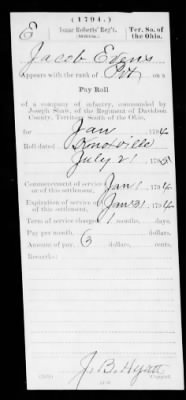 (1794.)
E
Isaac Roberts' Reg't.
Ter. So. of
the Ohio.
Jacob Evens
Appears with the rank of Pvt on
Pay Roll
of a company of infantry, commanded by
Joseph Shaw, of the Regiment of Davidson
County, Territory South of the Ohio,
for Jan , 1794
Roll dated Knoxville
July 21 , 1795
Commencement of service
or of this settlement, Jan 1 , 1794
Expiration of service or
of this settlement, Jan 31 , 1794
Term of service charged 1 months, days.
Pay per month, dollars,
Amount of pay, 3 dollars, cents.
Remarks:
J. B. Hyatt
Copyist.